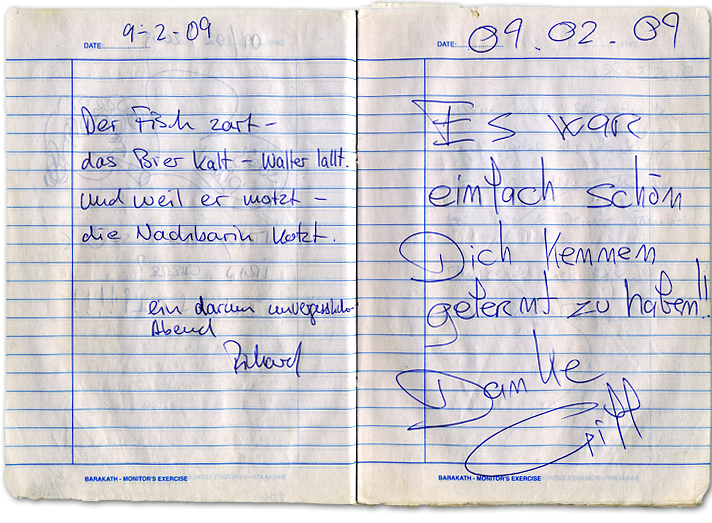 DATE: 9-2-09
Der Fisch zart -
das Bier kalt - Walter lallt.
und weil er motzt -
die Nachbarin kotzt.
ein darum unvergesslicher
Abend
Richard
BARAKATH - MONITOR'S EXERCISE
DATE: 09.02.09
Es war
einfach schön
Dich kennen
gelernt zu haben!!
Danke
BARAKATH - MONITOR'S EXERCISE